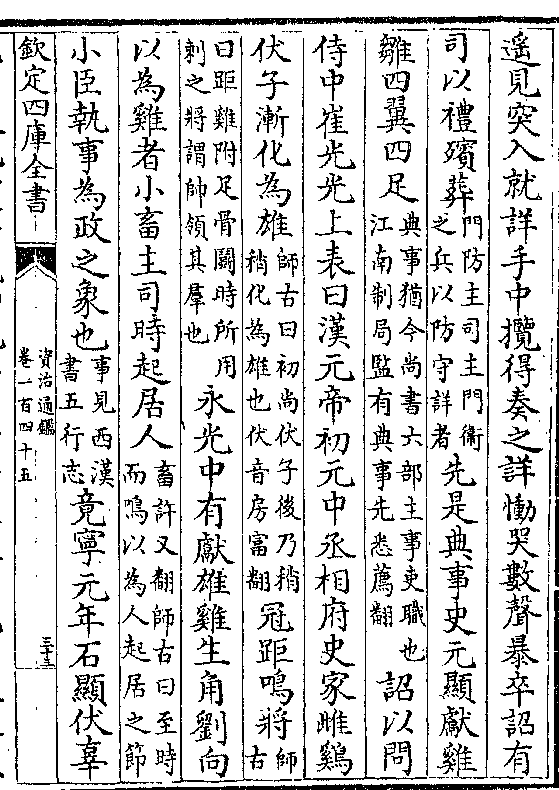 遥見突入就詳手中攬得奏之詳慟哭數聲暴卒詔有
司以禮殯葬門防主司主門衛之兵以防守詳者先是典事史元顯獻雞
雛四翼四足典事猶今尚書六部主事吏職也江南制局監有典事先悉薦翻詔以問
侍中崔光光上表曰漢元帝初元中丞相府史家雌鷄
伏子漸化為雄師古曰初尚伏子後乃稍稍化為雄也伏音房富翻冠距鳴將師古
曰距雞附足骨鬭時所用刺之將謂帥領其羣也永光中有獻雄雞生角劉向
以為雞者小畜主司時起居人畜許又翻師古曰至時而鳴以為人起居之節
小臣執事為政之象也事見西漢書五行志竟寧元年石顯伏辜
欽定四庫全書
資治通鑑
卷一百四十五
三十三